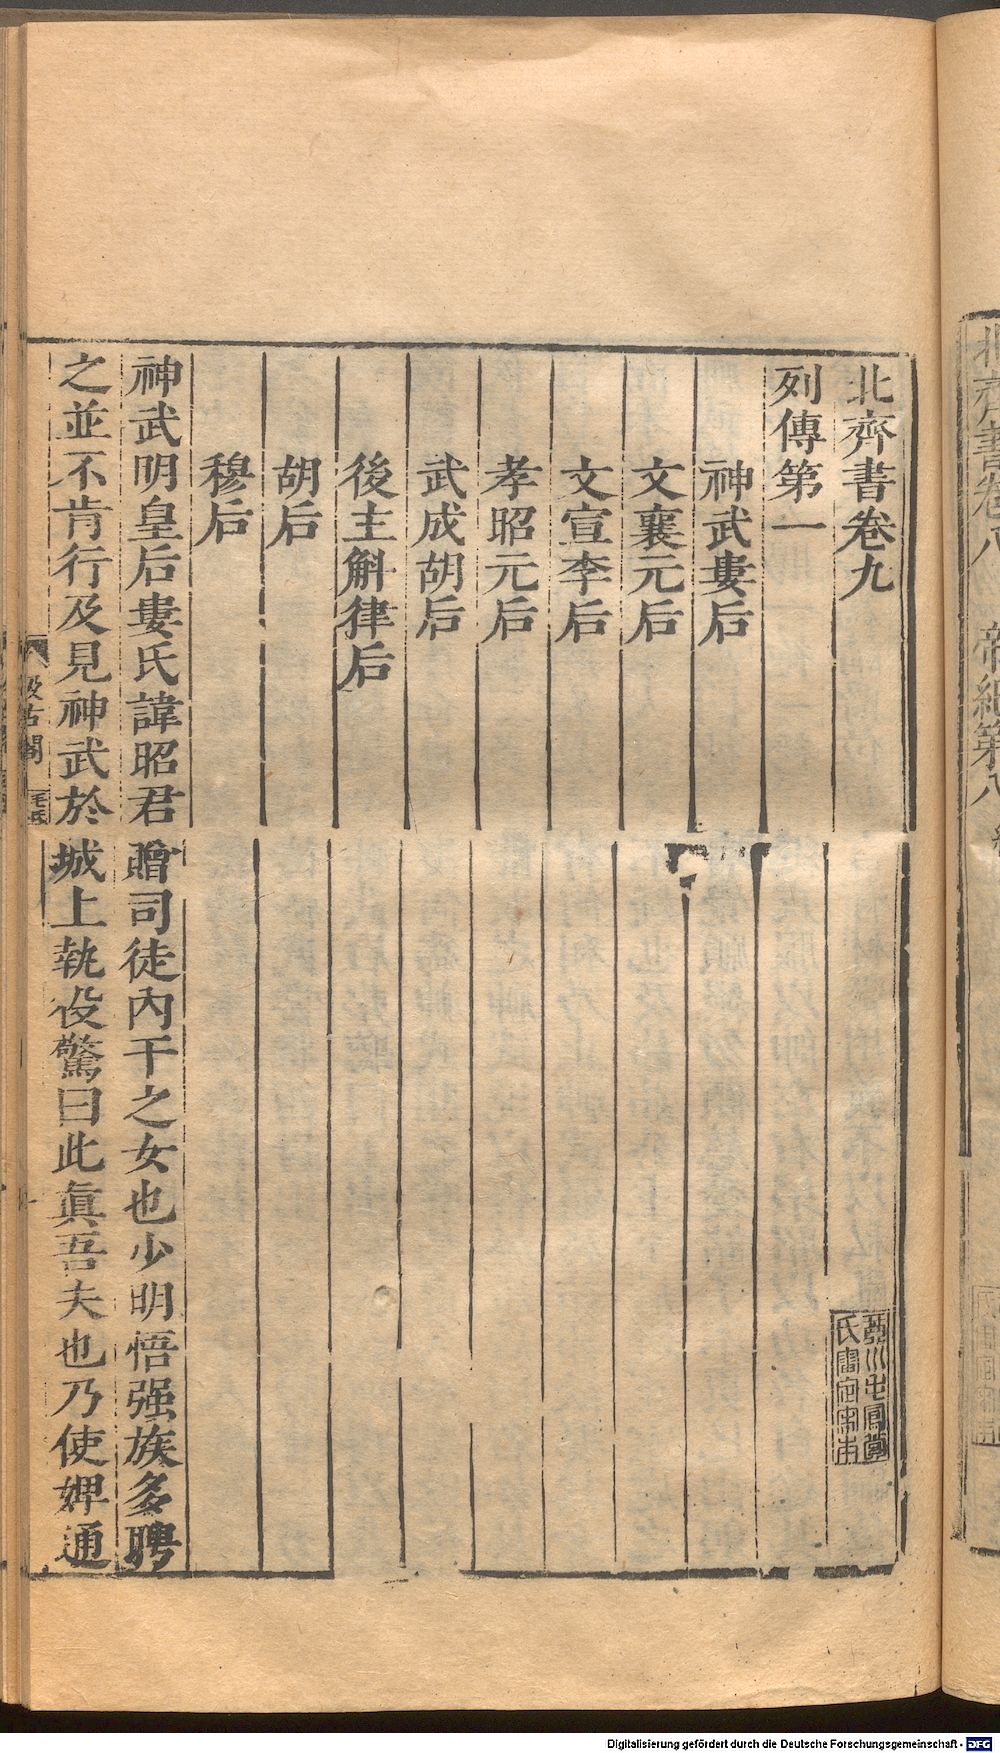 北齊書卷九
列傳第一
神武婁后
文襄元后
文宣李后
孝昭元后
武成胡后
後主斛律后
胡后
穆后
神武明皇后婁氏諱昭君贈司徒內干之女也少明悟强族多聘
之並不肯行及見神武於城上執役驚曰此眞吾夫也乃使婢通
汲古閣
毛氏
北齊書卷八
帝紀第八
Digitalisierung gefördert durch die Deutsche Forschungsgemeinschaft - DFG